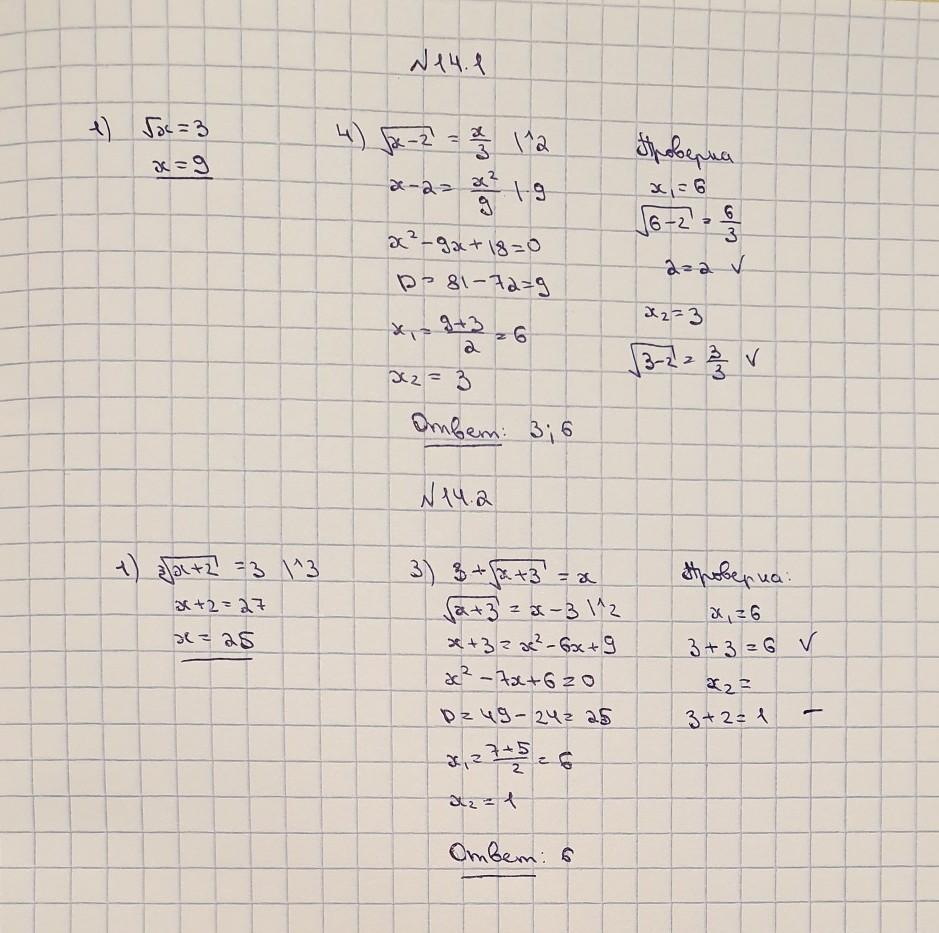 N14.1
1) √x = 3
x = 9
4) √x-2 = x/3 |^2
x-2 = x²/9 |·9
x² - 9x + 18 = 0
D = 81 - 72 = 9
x₁ = 9+3/2 = 6
x₂ = 3
Проверка
x₁ = 6
√6-2 = 6/3
2 = 2 ✓
x₂ = 3
√3-2 = 3/3 ✓
Ответ: 3; 6
N14.2
1) ³√x+2 = 3 \^3
x+2 = 27
x = 25
3) 3 + √x+3 = x
√x+3 = x - 3 \^2
x+3 = x² - 6x + 9
x² - 7x + 6 = 0
D = 49 - 24 = 25
x₁ = 7+5/2 = 6
x₂ = 1
Проверка:
x₁ = 6
3 + 3 = 6 ✓
x₂ =
3 + 2 = 1 –
Ответ: 6